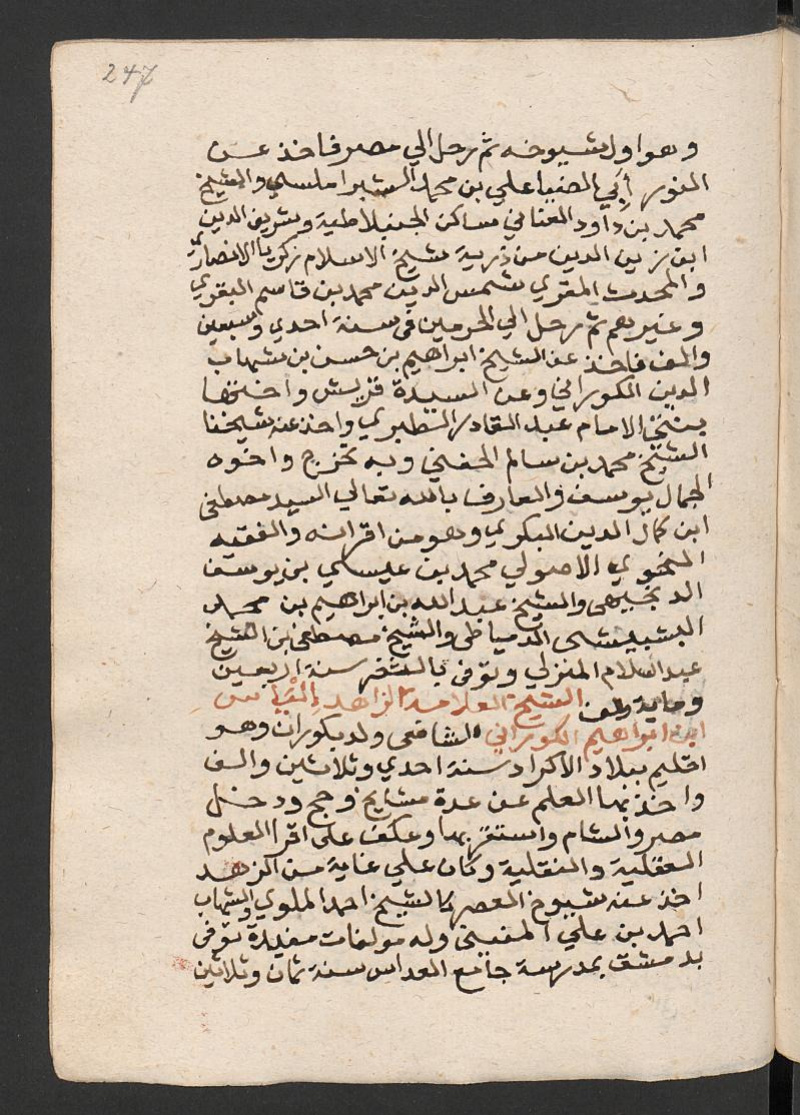 247
وهو اول شيوخه ثم رحل الي مصر فاخذ عن
النور ابي الضيا علي بن محمد الشبراملسي والشيخ
محمد بن داود العناني ساكن الجنبلاطية وشرف الدين
ابن زين الدين من ذرية شيخ الاسلام زكريا الانصاري
والمحدث المقري شمس الدين محمد بن قاسم البقري
وغيرهم ثم رحل الي الحرمين في سنة احدي وتسعين
والف فاخذ عن الشيخ ابراهيم بن حسن بن شهاب
الدين الكوراني وعن السيدة قريش واختها
بنتي الامام عبد القادر الطبري واخذ عنه شيخنا
الشيخ محمد بن سالم الحفني وبه تخرج واخوه
الجمال يوسف والعارف بالله تعالي السيد مصطفى
ابن كمال الدين البكري وهو من اقرانه والفقيه
النحوي الاصولي محمد بن عيسي بن يوسف
الدنجيهي والشيخ عبد الله بن ابراهيم بن محمد
البشبيشى الدمياطي والشيخ مصطفى بن الشيخ
عبد السلام المنزلي وتوفى بالثغر سنة اربعين
وماية والف الشيخ العلامة الزاهد الياس
ابن ابراهيم الكوراني الشافعى ولد بكوران وهو
اقليم ببلاد الاكراد سنة احدي وثلاثين والف
واخذ بها العلم عن عدة مشايخ وحج ودخل
مصر والشام واستقر بها وعكف على اقرا العلوم
العقلية والنقلية وكان علي غاية من الزهد
اخذ عنه شيوخ العصر كالشيخ احمد الملوي والشهاب
احمد بن علي المنينى وله مولفات مفيدة توفى
بدمشق بمدرسة جامع العداس سنة ثمان وثلاثين